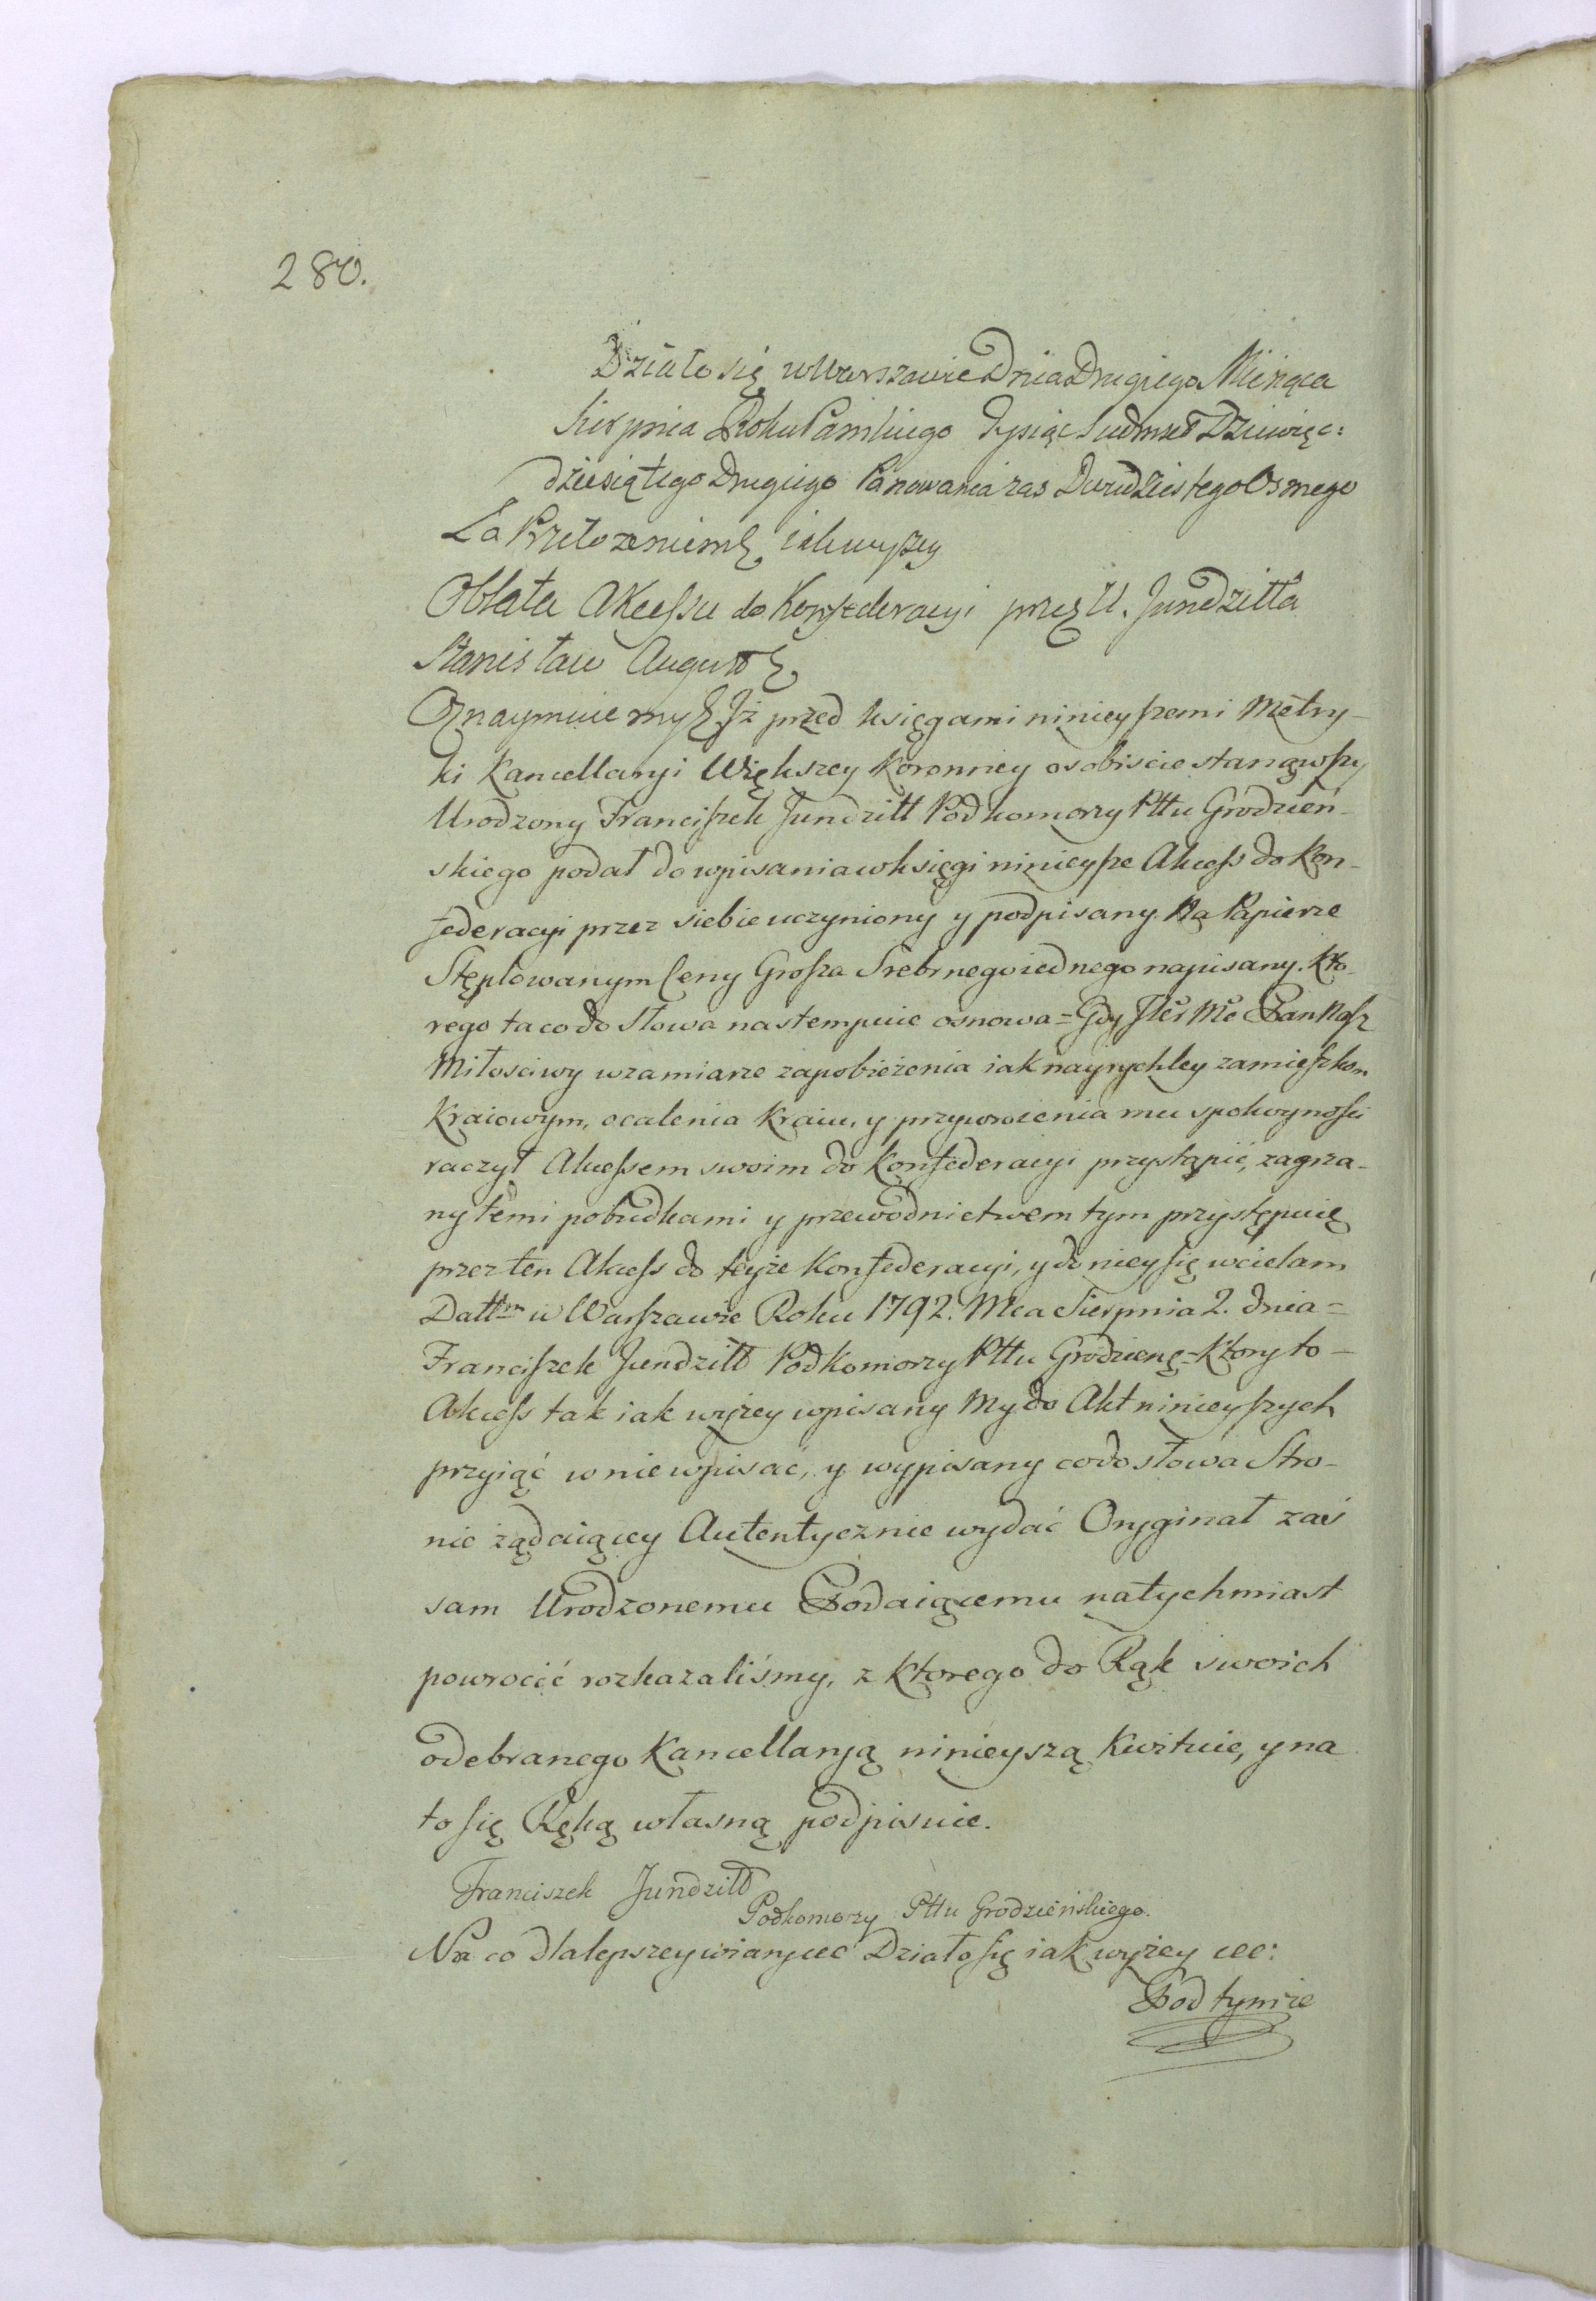 280.
Działo się w Warszawie Dnia Drugiego Miesiąca
Sierpnia Roku Pańskiego Tysiąc Siedmset Dziewięć:
dziesiątego Drugiego Panowania zas Dwudziestego Osmego
Za Przełożeniem &c iak wyżey
Oblata Akcessu do Konfederacyi przez U. Jundziłła
Stanisław August &c
Oznaymuiemy &c Iż przed księgami ninieyszemi Metry-
ki Kancellaryi Większey Koronney osobiście stanąwszy
Urodzony Franciszek Jundziłł Podkomorzy Pttu Grodzień-
skiego podał do wpisania w księgi ninieysze Akcess do Kon-
federacyi przez siebie uczyniony y podpisany. Na Papierze
Stęplowanym Ceny Grosza Srebrnego iednego napisany. Kto-
rego ta co do słowa nastempuie osnowa = Gdy Pan Nasz
Miłosciwy w zamiarze zapobieżenia iak nayrychley zamieszkom
Kraiowym, ocalenia Kraiu, y przywrocenia mu spokoyności
raczył Akcessem swoim do Konfederacyi przystąpić, zagrza-
ny temi pobudkami y przewodnictwem tym przystępuię
przez ten Akcess do teyże Konfederacyi, y do niey się wcielam
Dattm w Warszawie Roku 1792. Mca Sierpnia 2. dnia =
Franciszek Jundziłł Podkomorzy Pttu Grodzieng = Ktory to -
Akcess tak iak wyżey wpisany My do Akt ninieyszych
przyiąć w nie wpisać, y wypisany co do słowa Stro-
nie żądaiącey Autentycznie wydać Oryginał zaś
sam Urodzonemu Podaiącemu natychmiast
powrocić rozkazaliśmy, z ktorego do Rąk swoich
odebranego Kancellaryą ninieyszą Kwituie, y na
to się Ręką własną podpisuie.
Franciszek Jundziłł
Podkomorzy Pttu Grodzieńskiego.
Na co dla lepszey wiary &c Działo się iak wyżey &c:
Pod tymże